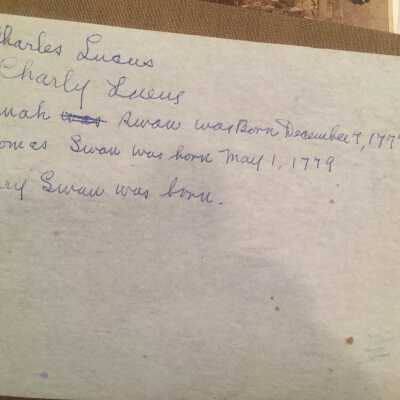 Charles Lucus
Charly Lucus
nnah was Swan was Born December 7, 177
omas Swan was born May 1, 1779
ary Swan was born.